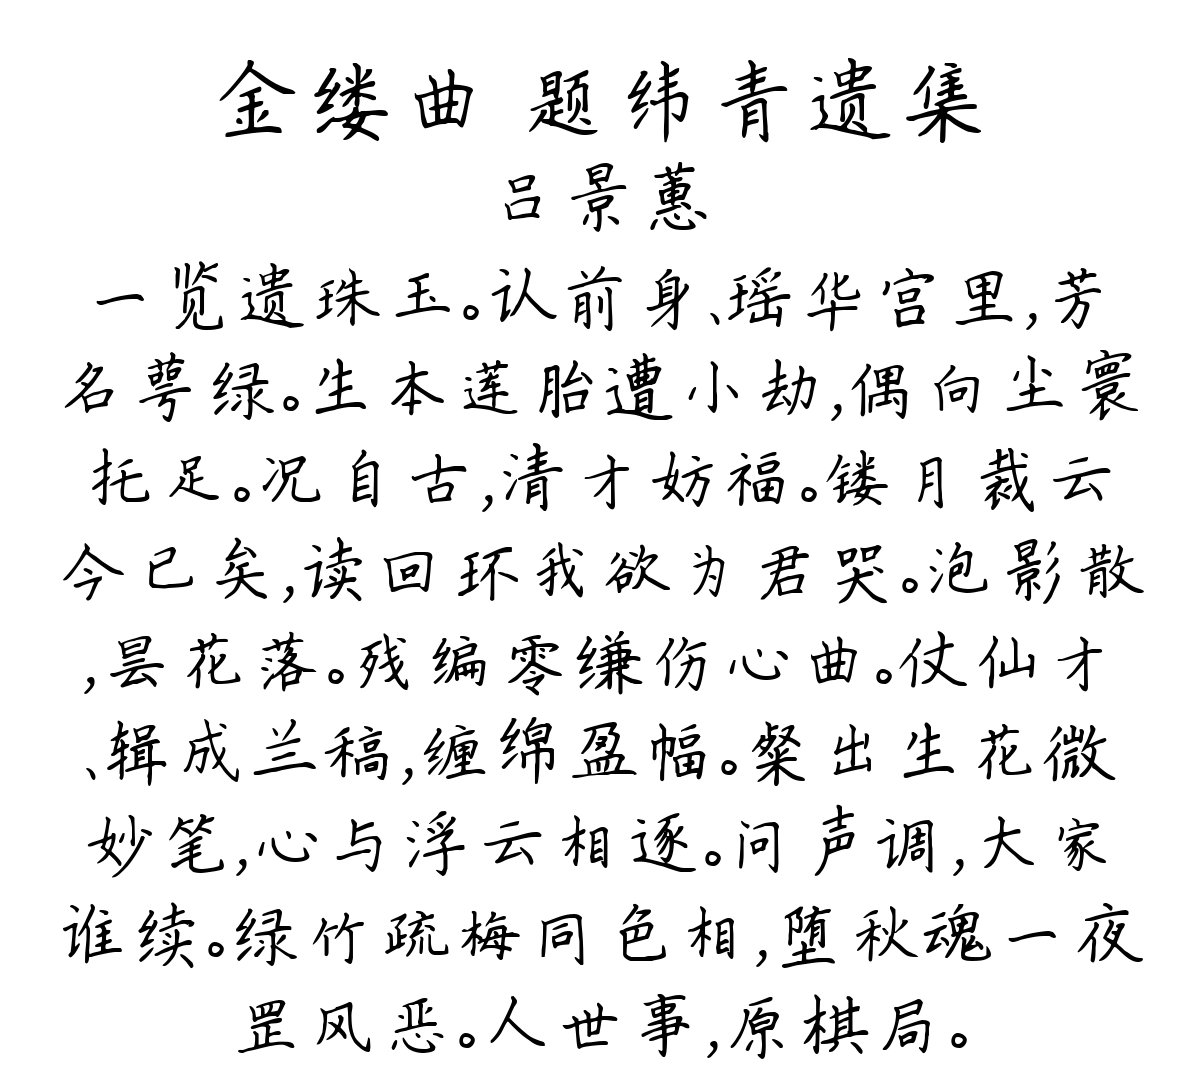 金缕曲 题纬青遗集
吕景蕙
一览遗珠玉。认前身、瑶华宫里,芳
名萼绿。生本莲胎遭小劫,偶向尘寰
托足。况自古,清才妨福。镂月裁云
今已矣,读回环我欲为君哭。泡影散
,昙花落。残编零缣伤心曲。仗仙才
、辑成兰稿,缠绵盈幅。粲出生花微
妙笔,心与浮云相逐。问声调,大家
谁续。绿竹疏梅同色相,堕秋魂一夜
罡风恶。人世事,原棋局。